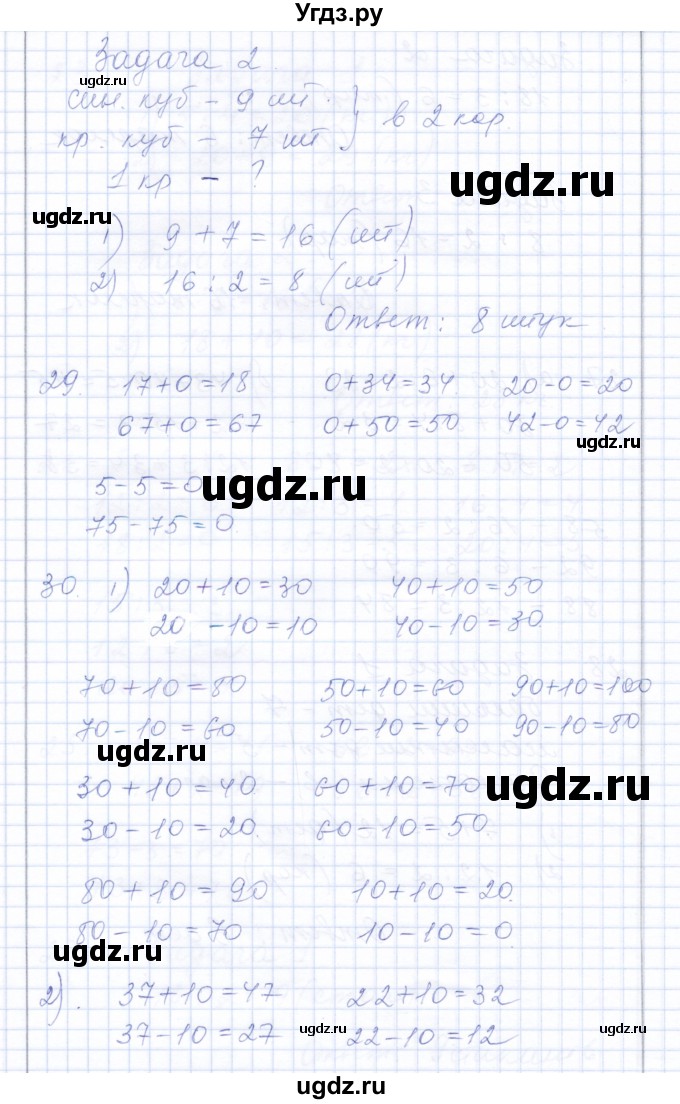 Угдз.ру
Задача 2.
син. куб – 9 шт.
кр. куб – 7 шт } в 2 кор
1 кр – ?
1) 9 + 7 = 16 (шт)
2) 16 : 2 = 8 (шт)
Ответ: 8 штук.
29. 17+0=18 0+34=34 20-0=20
67+0=67 0+50=50 42-0=42
5-5=0
75-75=0
30. 1) 20+10=30 40+10=50
20-10=10 40-10=30.
70+10=80 50+10=60 90+10=100
70-10=60 50-10=40 90-10=80
30+10=40 60+10=70
30-10=20. 60-10=50.
80+10=90 10+10=20.
80-10=70 10-10=0.
2). 37+10=47 22+10=32
37-10=27 22-10=12
ugdz.ru
ugdz.ru
ugdz.ru
ugdz.ru
ugdz.ru
ugdz.ru
ugdz.ru
ugdz.ru
ugdz.ru
ugdz.ru
ugdz.ru